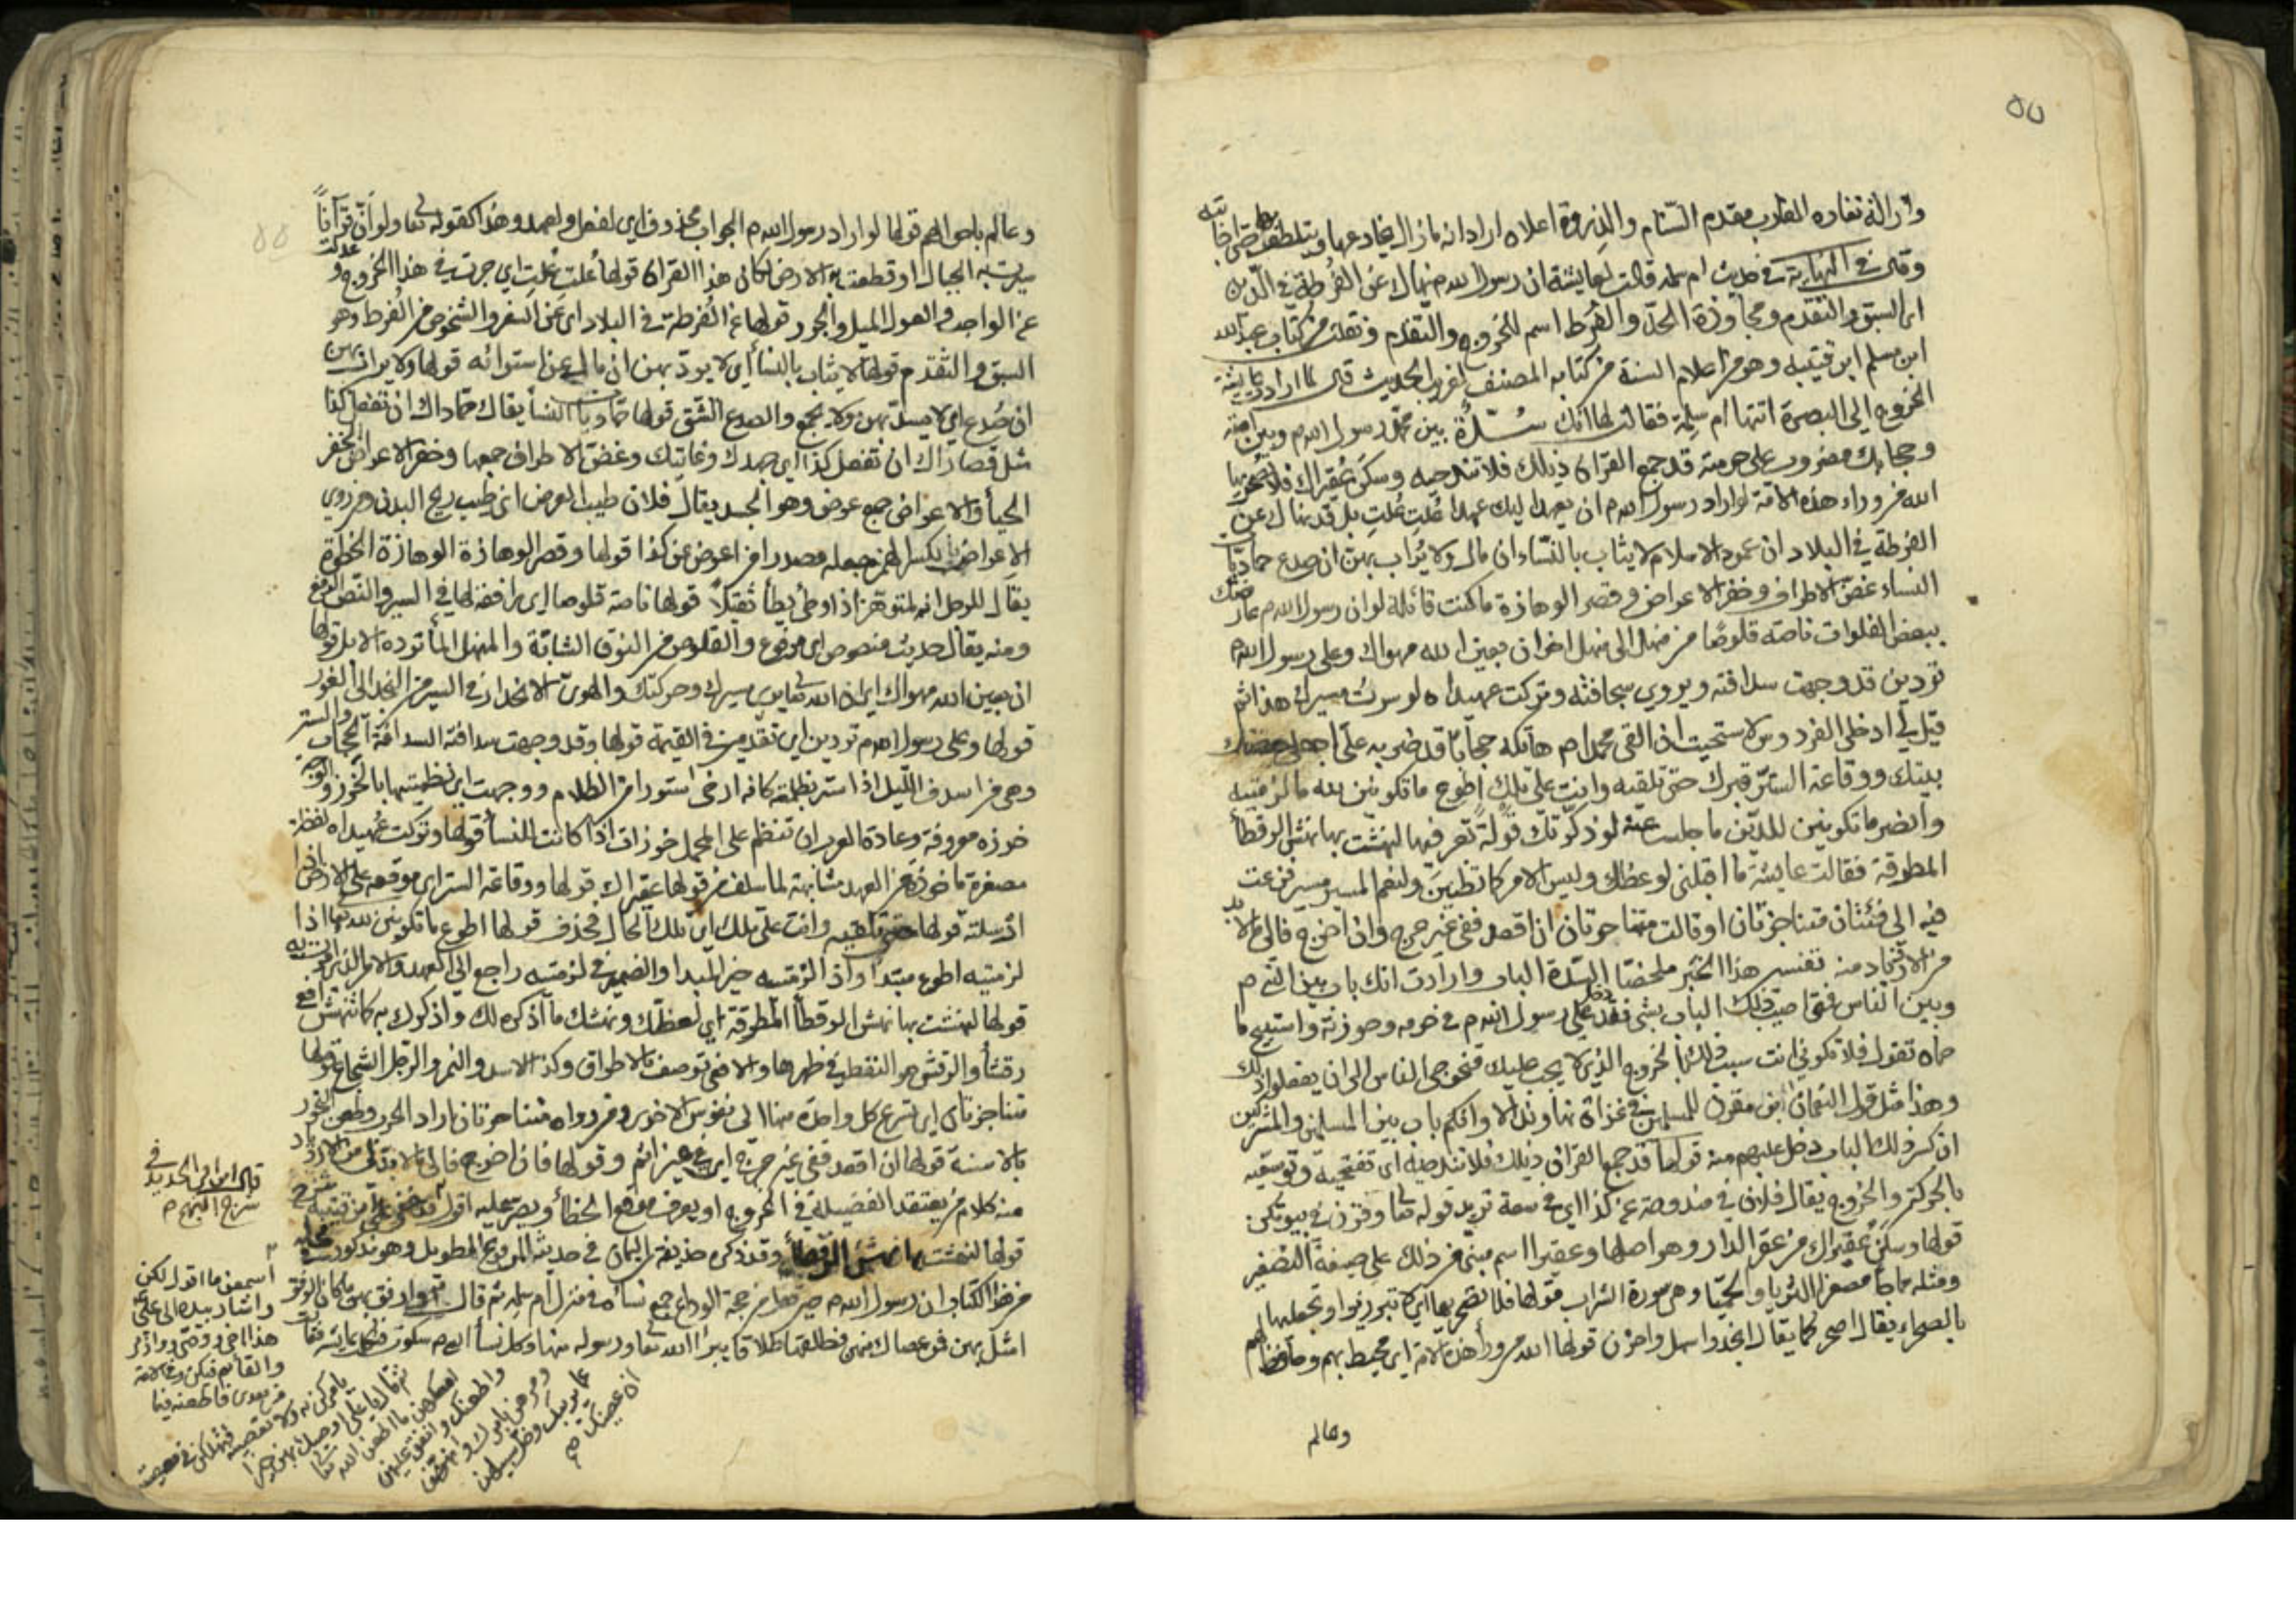 ٥٥
وازالة نفاره الغارب مقدم السّنام والذروة اعلاه اراد انه ما زال يخادعها ويتلطفها حتى اجابته
وقال في النهاية في حديث ام سلمه قالت لعايشة ان رسول الله ص نهاك عن الفُرطة في الدّين
اي السبق والتقدم ومجاوزة الحدّ والفُرط اسم للخروج والتقدم ونقلت من كتاب عبد الله
ابن مسلم ابن قتيبه وهو من اعلام السنة من كتابه المصنف لغريب الحديث قال لما ارادت عايشة
الخروج الى البصرة اتتها ام سلمة فقالت لها انك سُدّة بين محمّد رسول الله ص وبين امته
وحجابك مضروب على حرمته قد جمع القران ذيلك فلا تندحيه وسكن عُقيراك فلا تصحريها
الله من وراء هذه الامة لو اراد رسول الله ص ان يعهد اليك عهدا عُلتِ عُلتِ بل قد نهاك عن
الفرطة في البلاد ان عمود الاسلام لا يثاب بالنّساء ان مال ولا يُراب بهنّ ان صدع حماديات
النساء غضّ الاطراف وخفر الاعراض وقصر الوهازة ما كنت قائلة لو ان رسول الله ص عارضك
ببعض الفلوات ناصّة قلوصًا من منهل الى منهل اخر ان بعين الله مهواك وعلى رسول الله ص
تردين قد وجهت سدافته ويروى سجافته وتركت عهيداه لو سرتُ مسيرك هذا ثم
قيل لي ادخلي الفردوس لاستحيت ان القى محمدا ص هاتكة حجابًا قد ضربه عليّ اجعلي حصنك
بيتك ووقاعة الستر قبرك حتى تلقيه وانت على تلك اطوع ما تكونين لله ما لزمتيه
وانصر ما تكونين للدّين ما جلست عنه لو ذكّرتك قولةً تعرفينها لنهشت بها نهش الرقطاء
المطرقة فقالت عايشة ما اقبلني لوعظك وليس الامر كما تظنين ولنعم المسير مسير فزعت
فيه الى فئتان متناجزتان او قالت متناحرتان ان اقعد ففي غير حرج وان اخرج فالى ما لا بد
من الازدياد منه تفسير هذا الخبر ملخصًا السّدة الباب وارادت انك باب بين النبي ص
وبين الناس فمتى اصيب ذلك الباب بشي فقد دخل على رسول الله ص في حرمه وحوزته واستبيح ما
حماه تقول فلا تكوني انت سبب ذلك بالخروج الذي لا يجب عليك فتحوجي الناس الى ان يفعلوا ذلك
وهذا مثل قول النعمان ابن مقرن للمسلمين في غزاة نهاوند الا وانكم باب بين المسلمين والمشركين
ان كسر ذلك الباب دخل عليهم منه قولها قد جمع القران ذيلك فلا تندحيه اي تفتحيه وتوسعيه
بالحركة والخروج يقال فلان في مندوحة عن كذا اي في سعة تريد قوله تعا وقرن في بيوتكن
قولها وسكن عُقيراك من عقر الدار وهو اصلها وعقيرا اسم مبني من ذلك على صيغة التصغير
ومثله مما جاء مصغرا الثريا والحميا وهي سورة الشراب قولها فلا تصحريها اي لا تبرزيها وتجعليها
بالصحراء يقال اصحر كما يقال انجد واسهل واحزن قولها الله من وراء هذه الامة اي محيط بهم وحافظ لهم
وعالم
وعالم باحوالهم قولها لو اراد رسول الله ص الجواب محذوف اي لفعل ولعهد وهذا كقوله تعا ولو انّ قرآناً
سيرت به الجبال او قطعت به الارض لكان هذا القران قولها عُلتِ عُلتِ اي جرت في هذا الخروج وعدلت
عن الواجب والعول الميل والجور قولها عن الفُرطة في البلاد اي عن السفر والشخوص من الفرط وهو
السبق والتقدم قولها لا يثاب بالنسأ اي لا يردّ بهن ان مال عن استوائه قولها ولا يراب بهن
ان صُدع اي لا يسد بهن ولا يجمع والصدع الشّق قولها حماديات النسأ يقال حماداك ان تفعل كذا
مثل قصاراك ان تفعل كذا اي جهدك وغايتك وغضّ الاطراف جمعها وخفر الاعراض الخفر
الحيأ والاعراض جمع عرض وهو الجسد يقال فلان طيب العرض اي طيب ريح البدن ومن روى
الاعراض بكسر الهمزة جعله مصدرا من اعرض عن كذا قولها وقصر الوهازة الوهازة الخطوة
يقال للرجل انه لمتوهّز اذا وطئ يطأ ثقيلاً قولها ناصّة قلوصا اي رافعة لها في السير والنّص الرفع
ومنه يقال حديث منصوص اي مرفوع والقلوص من النوق الشابّة والمنهل الماء تورده الابل قولها
ان بعين الله مهواك اي ان الله تعالى يرى سيرك وحركتك والهويّ الانحدار في السير من النجد الى الغور
قولها وعلى رسول الله ص تردين اي تقدمين في القيمة قولها وقد وجهت سدافته السدافة الحجاب والستر
وهي من اسدف الليل اذا استر بظلمته كانه ارخى استورا من الظلام ووجهت اي نظمتيها بالخرز والوجيه
خرزه معروفة وعادة العرب ان تنظم على المحمل خرزات اذا كانت للنسأ قولها وتركت عُهيداه لفظة
مصغرة مأخوذة من العهد مشابهة لما سلف من قولها عقيراك قولها ووقاعة الستر اي موقعه على الارض اذا
ارسلته قولها حتى تلقيه وانت على تلك اي على تلك الحال فحذف قولها اطوع ما تكونين لله اذا
لزمتيه اطوع مبتدأ واذا لزمتيه خبر المبتدا والضمير في لزمتيه راجع الى العهد والامر الذي امرت به
قولها لنهشت بها نهش الرقطأ المطرقة اي لعظك ونهشك ما اذكره لك واذكرك به كما تنهش افعى
رقشأ والرقش هو النقط في ظهرها والافعى توصف بالاطراق وكذا الاسد والنمر والرجل الشجاع قولها
متناجزتان اي تسرع كل واحدة منها الى نفوس الاخرى ومن رواه متناحرتان اراد الحرب وطعن النحور
بالاسنة قولها ان اقعد ففي غير حرج اي في غير اثم وقولها فان اخرج فالى ما لا بد لي من الازدياد
منه كلام من يعتقد الفضيلة في الخروج او يعرف موقع الخطأ ويصر عليه اقول
قولها لنهشت بها نهش الرقطأ وقد ذكره حذيفة اليمان في حديثه المروي الطويل وهو مذكور في محله
من هذا الكتاب ان رسول الله ص حين رجع من حجة الوداع جمع نسائه في منزل ام سلمه ثم قال
امثل بهن فمن عصاك منهن فطلقها طلاقا يبرأ الله تعا ورسوله منها وكل نسأ النبي ص سكوت فتكلمت عايشة فقالت
قال ابن ابي الحديد في
شرح النهج ص
اسمعن ما اقول لكن
واشار بيده الى علي
هذا اخي ووصيي ووارثي
والقائم فيكن وفي الامة
من بعدي فاطعنه فيما
يامركن به ولا تعصينه فتهلكن في معصيته
ثم قال يا علي اوصيك بهن خيرا
امسكهن ما اطعن الله تعا
واطعنك وانفق عليهن
ومرهن بامرك وانههن
عما يريبك وخل سبيلهن
ان عصينك ص